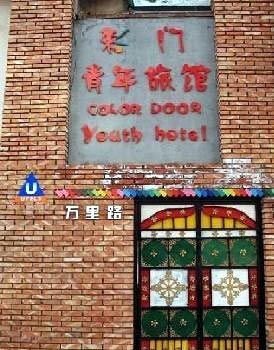 彩门
青年旅馆
COLOR DOOR
Youth hotel
U
万里路